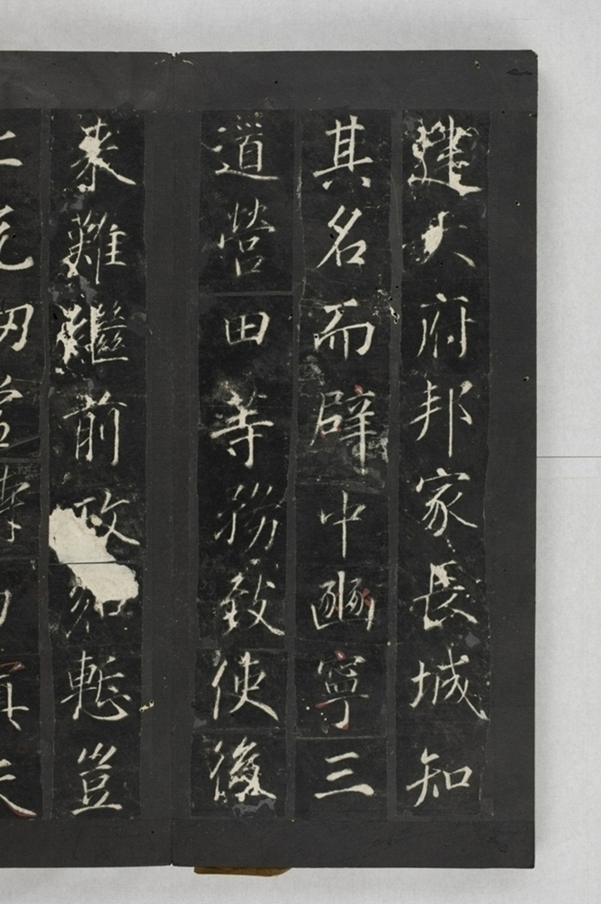 建大府邦家長城知
其名而辟中豳寧三
道營田等務致使後
来難繼前政慙豈